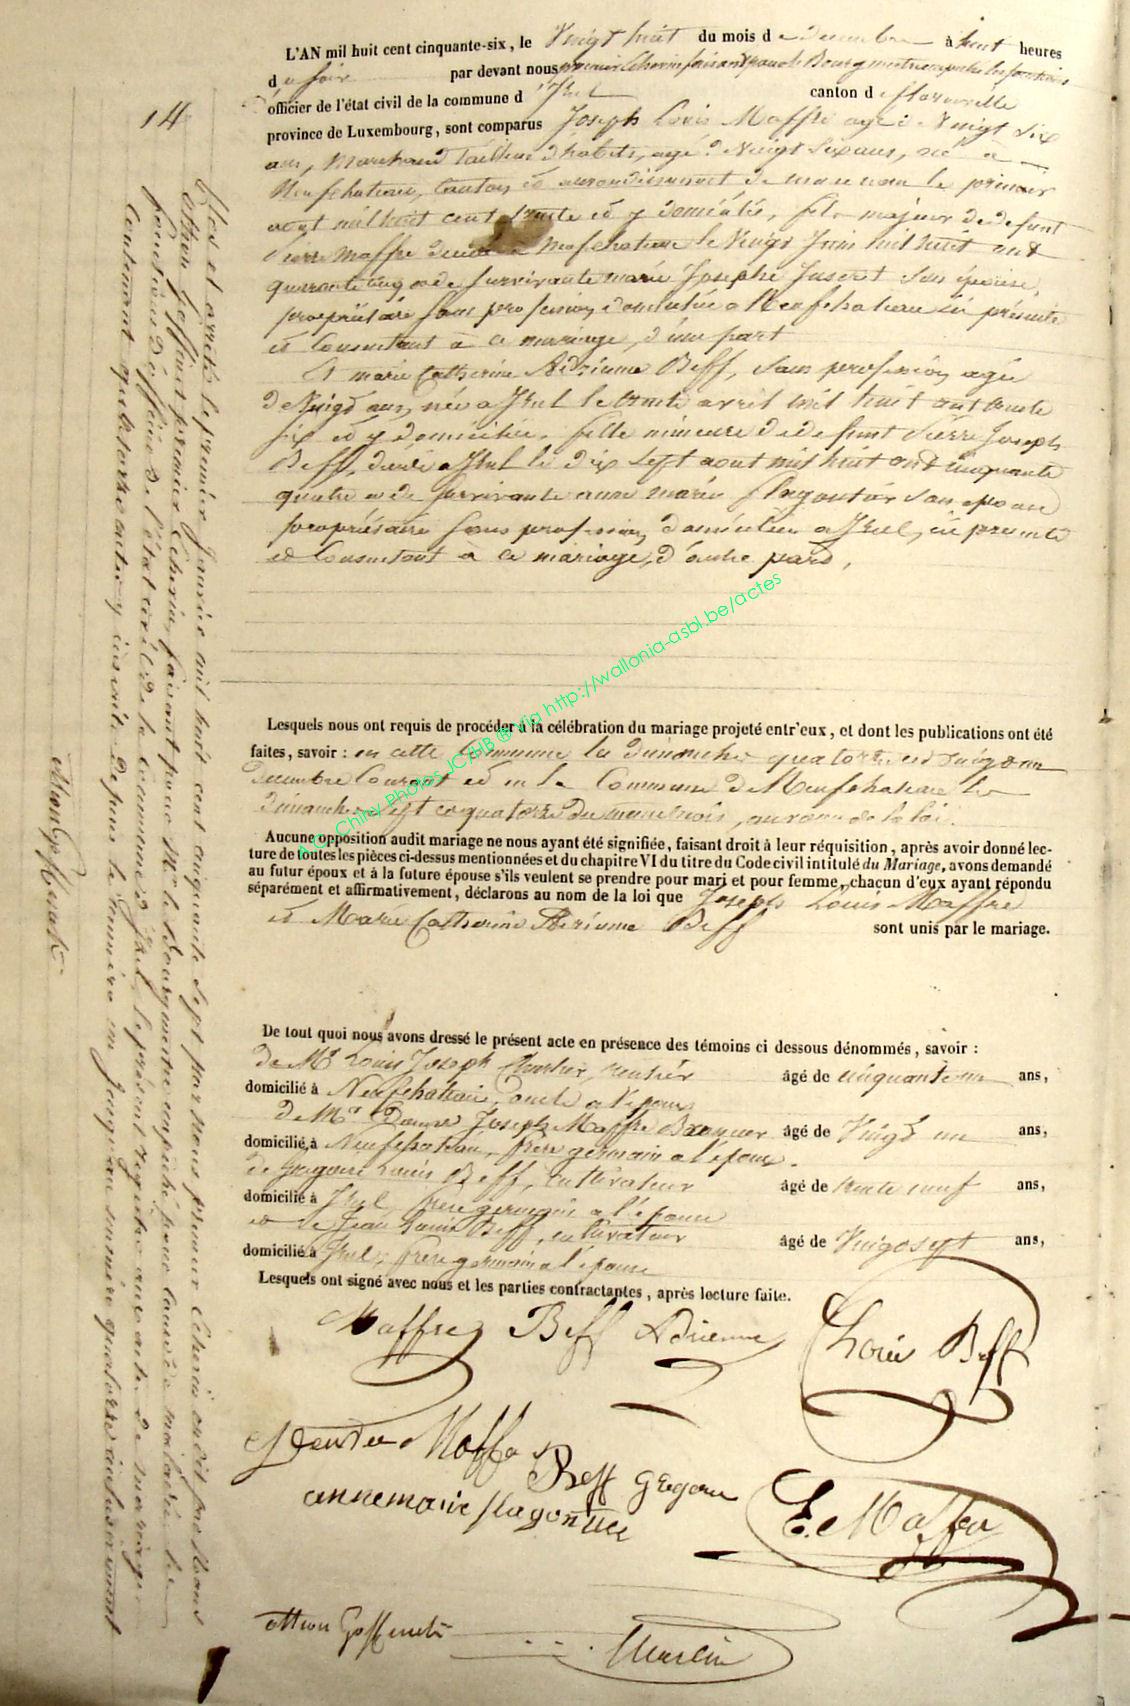 14
L'AN mil huit cent cinquante-six, le Vingt huit du mois de decembre à huit heures
du soir par devant nous premier Echevin faisant pour le Bourgmestre empeché les fonctions
officier de l'état civil de la commune d'Izel canton de florenville
province de Luxembourg, sont comparus Joseph Louis Maffré agé de Vingt six
ans, Marchand Tailleur d'habits, agé de Vingt six ans, né à
Neufchateau, Canton et arrondissement de même nom le premier
aout mil huit cent trente et y domicilié, fils majeur de defunt
Pierre Maffre decedé a Neufchateau le Vingt Juin mil huit cent
quarante cinq et de Survivante marie Josephe Juseret son épouse,
propriétaire sans profession, domiciliée a Neufchateau ici présente
et Consentant à ce mariage, d'une part
Et marie Catherine Adrienne Beff, sans profession, agée
de Vingt ans, née a Izel le trente avril mil huit cent trente
six et y domiciliée, fille mineure de defunt Pierre Joseph
Beff, decedé a Izel le dix sept aout mil huit cent cinquante
quatre et de Survivante anne marie son epouse
propriétaire sans profession, domiciliée a Izel, ici presente
et Consentant à ce mariage, d'autre part,
Lesquels nous ont requis de procéder à la célébration du mariage projeté entr'eux, et dont les publications ont été
faites, savoir : en cette Commune les dimanches quatorze et vingt un
decembre Courant et en la Commune de Neufchateau les
Dimanches sept et quatorze du meme mois, au vœu de la loi.
Aucune opposition audit mariage ne nous ayant été signifiée, faisant droit à leur réquisition, après avoir donné lec-
ture de toutes les pièces ci-dessus mentionnées et du chapitre VI du titre du Code civil intitulé du Mariage, avons demandé
au futur époux et à la future épouse s'ils veulent se prendre pour mari et pour femme, chacun d'eux ayant répondu
séparément et affirmativement, déclarons au nom de la loi que Joseph Louis Maffre
et Marie Catherine Adrienne Beff sont unis par le mariage.
De tout quoi nous avons dressé le présent acte en présence des témoins ci dessous dénommés, savoir :
de Mr Louis Joseph rentier âgé de cinquante un ans,
domicilié à Neufchateau, oncle a l'epoux
de Mr Joseph Maffre âgé de Vingt un ans,
domicilié à Neufchateau, frere germain a l'epoux.
de Grégoire Louis Beff, cultivateur âgé de trente neuf ans,
domicilié à Izel, frere germain a l'épouse
et de Jean Louis Beff, cultivateur âgé de Vingt sept ans,
domicilié à Izel, frere germain a l'épouse
Lesquels ont signé avec nous et les parties contractantes, après lecture faite.
Maffre Beff Adrienne Beff
Maffre Beff Gregoire
annemarie E. Maffre
Goffinet
Clos et arrêté le premier Janvier mil huit cent cinquante sept par nous
Goffinet premier Echevin, faisant pour Mr le Bourgmestre empeché pour cause de maladie les
fonctions d'officier de l'état civil de la commune d'Izel, le présent registre aux actes de mariage
contenant quatorze actes inscrits depuis le numéro un jusqu'au numéro quatorze inclusivement
Goffinet
A.C. Chiny Photos JC/HB ® Via http://wallonia-asbl.be/actes